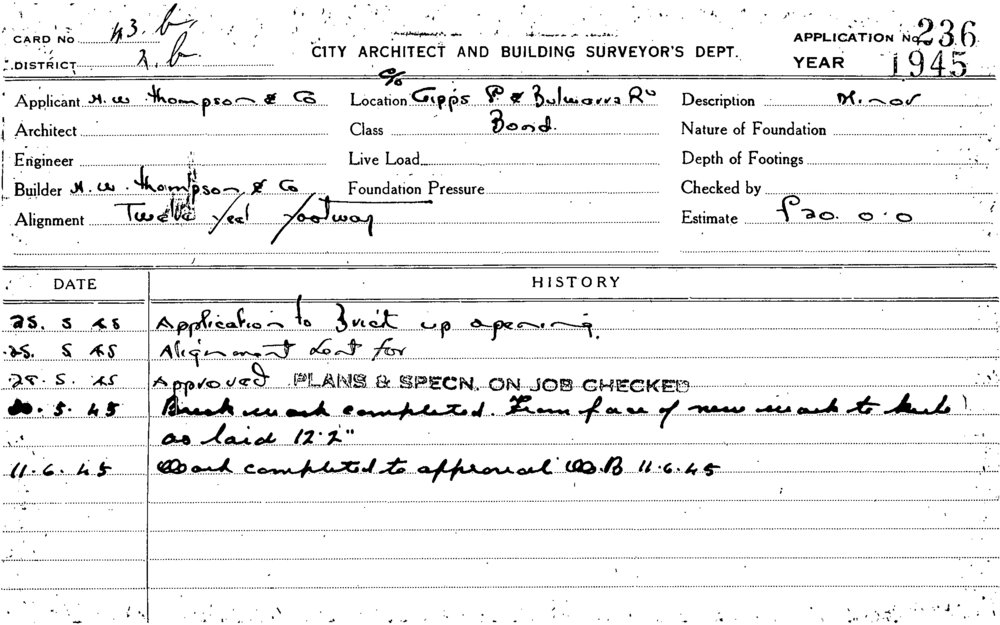 CARD No 43. b,
DISTRICT 2. b
CITY ARCHITECT AND BUILDING SURVEYOR'S DEPT.
APPLICATION No 236
YEAR 1945
Applicant H. W. Thompson & Co
Location c/o Gipps St & Bulwarra Rd
Description Minor
Architect
Class Bond.
Nature of Foundation
Engineer
Live Load
Depth of Footings
Builder H. W. Thompson & Co
Foundation Pressure
Checked by
Alignment Twelve feet footway
Estimate £20. 0. 0
DATE HISTORY
25. 5 45 Application to Brick up opening.
25. 5 45 Alignment sent for
28. 5. 45 Approved PLANS & SPECN. ON JOB CHECKED
5. 45 Brick work completed. From face of new work to kerb
as laid 12'.2"
11. 6. 45 Work completed to approval W.B 11.6.45